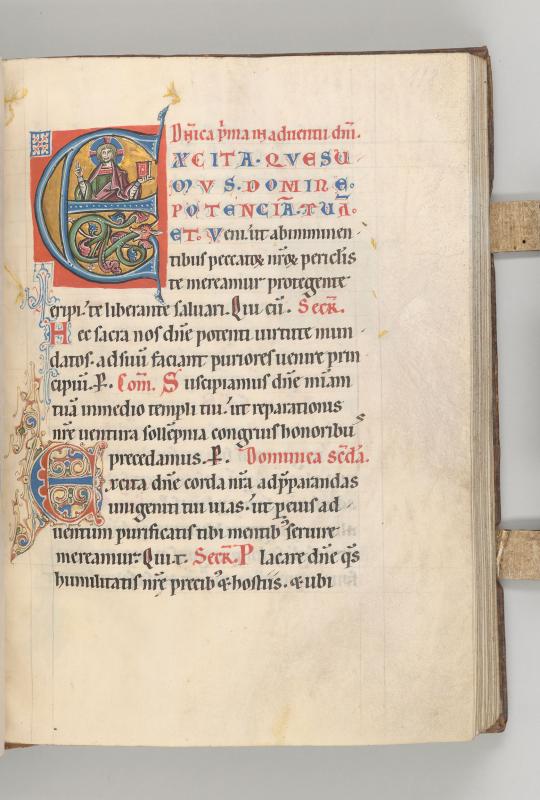 Dn̄ica p̄ma in aduentu dn̄i.
EXCITA · QVESU
MVS · DOMINE ·
POTENCIĀ · TUĀ ·
ET · Veni · ut ab imminen
tibus peccatoꝝ nr̄oꝝ periclis
te mereamur protegente
eripi · te liberante saluari. Qui cū. Secr̄.
Hec sacra nos dn̄e potenti uirtute mun
datos · ad suū faciant puriores uenire prin
cipiū. P. Com̄. Suscipiamus dn̄e mīam
tuā in medio templi tui · ut reparationis
nr̄e uentura sollēpnia congruis honoribus
precedamus. P. Dominica scd̄a.
Excita dn̄e corda nr̄a ad p̄parandas
unigeniti tui uias · ut p eius ad
uentum purificatis tibi mentib; seruire
mereamur. Qui. t. Secr̄. Placare dn̄e q̄s
humilitatis nr̄e precib; & hostiis. & ubi